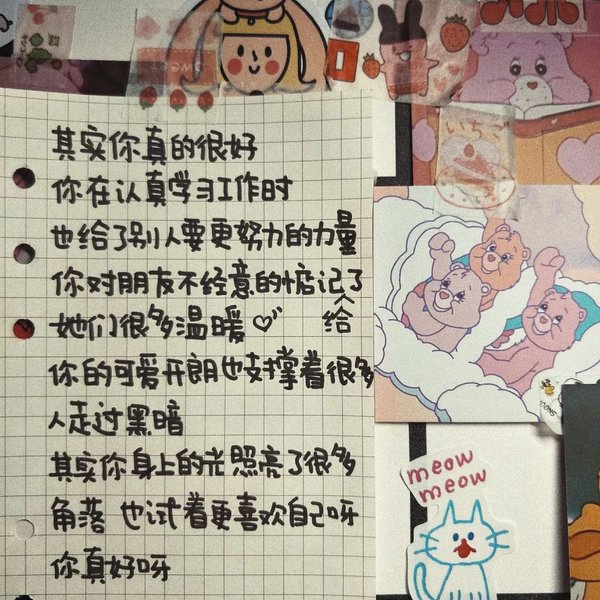 其实你真的很好
你在认真学习工作时
也给了别人要更努力的力量
你对朋友不经意的惦记给了
她们很多温暖
你的可爱开朗也支撑着很多
人走过黑暗
其实你身上的光照亮了很多
角落 也试着更喜欢自己呀
你真好呀
いちご
meow
meow